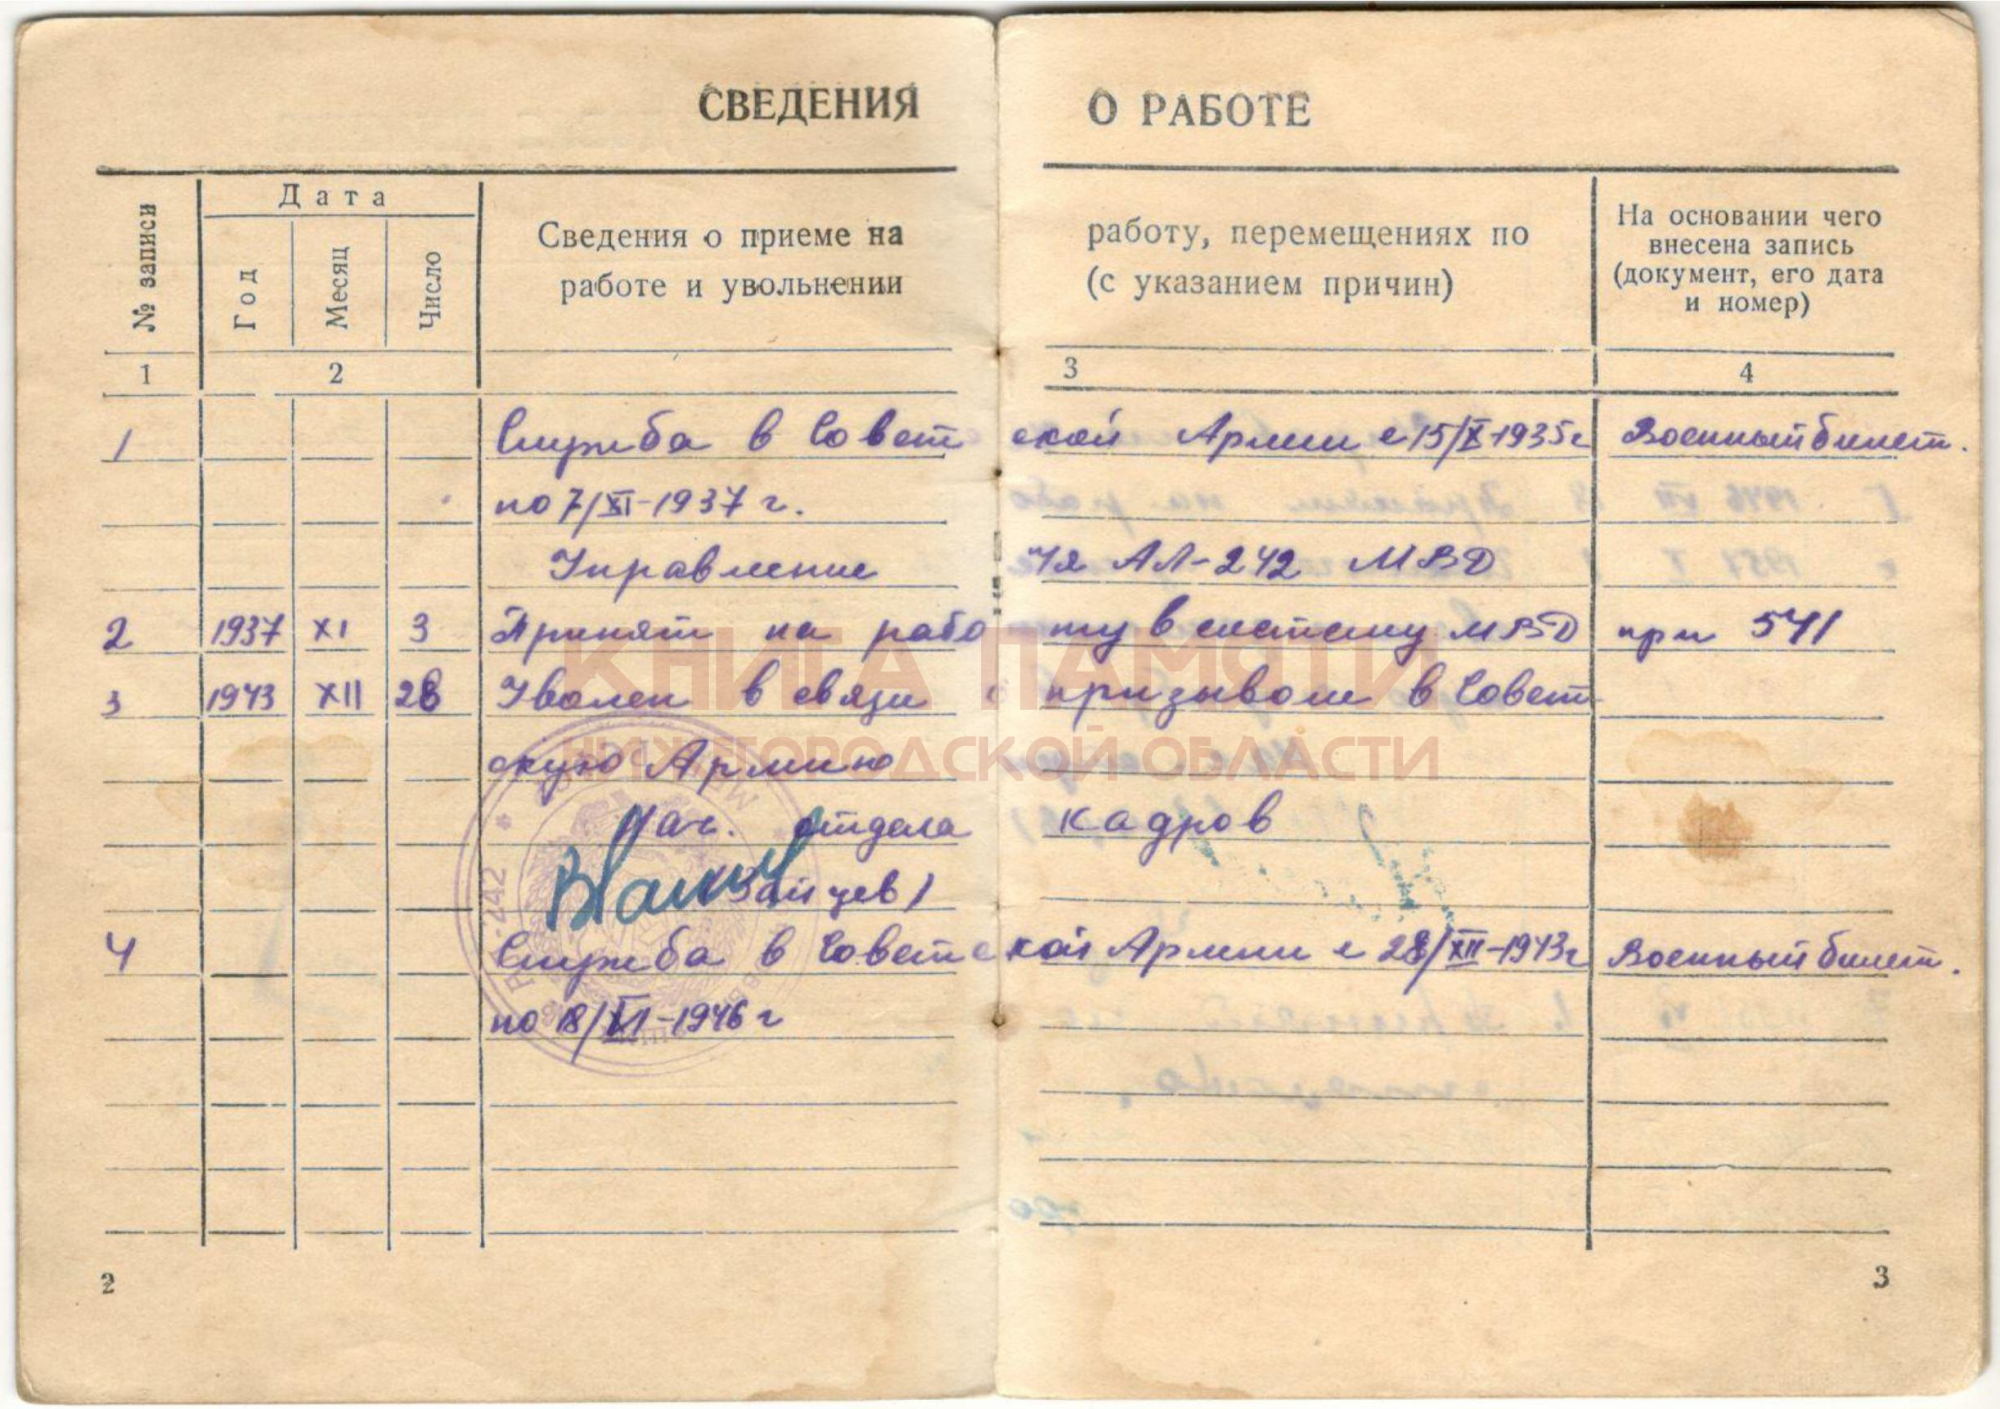 СВЕДЕНИЯ О РАБОТЕ
№ записи
Дата
Год
Месяц
Число
Сведения о приеме на работу, перемещениях по
работе и увольнении (с указанием причин)
На основании чего
внесена запись
(документ, его дата
и номер)
1 2 3 4
1 Служба в Советской Армии с 15/X-1935г Военный билет.
по 7/XI-1937 г.
Управление п/я АЛ-242 МВД
2 1937 XI 3 Принят на работу в систему МВД пр 541
3 1943 XII 28 Уволен в связи с призывом в Совет
скую Армию
Нач. отдела кадров
Зайцев)
4 Служба в Советской Армии с 28/XII-1943г Военный билет.
по 18/VI-1946 г
КНИГА ПАМЯТИ
НИЖЕГОРОДСКОЙ ОБЛАСТИ
-242
2 3